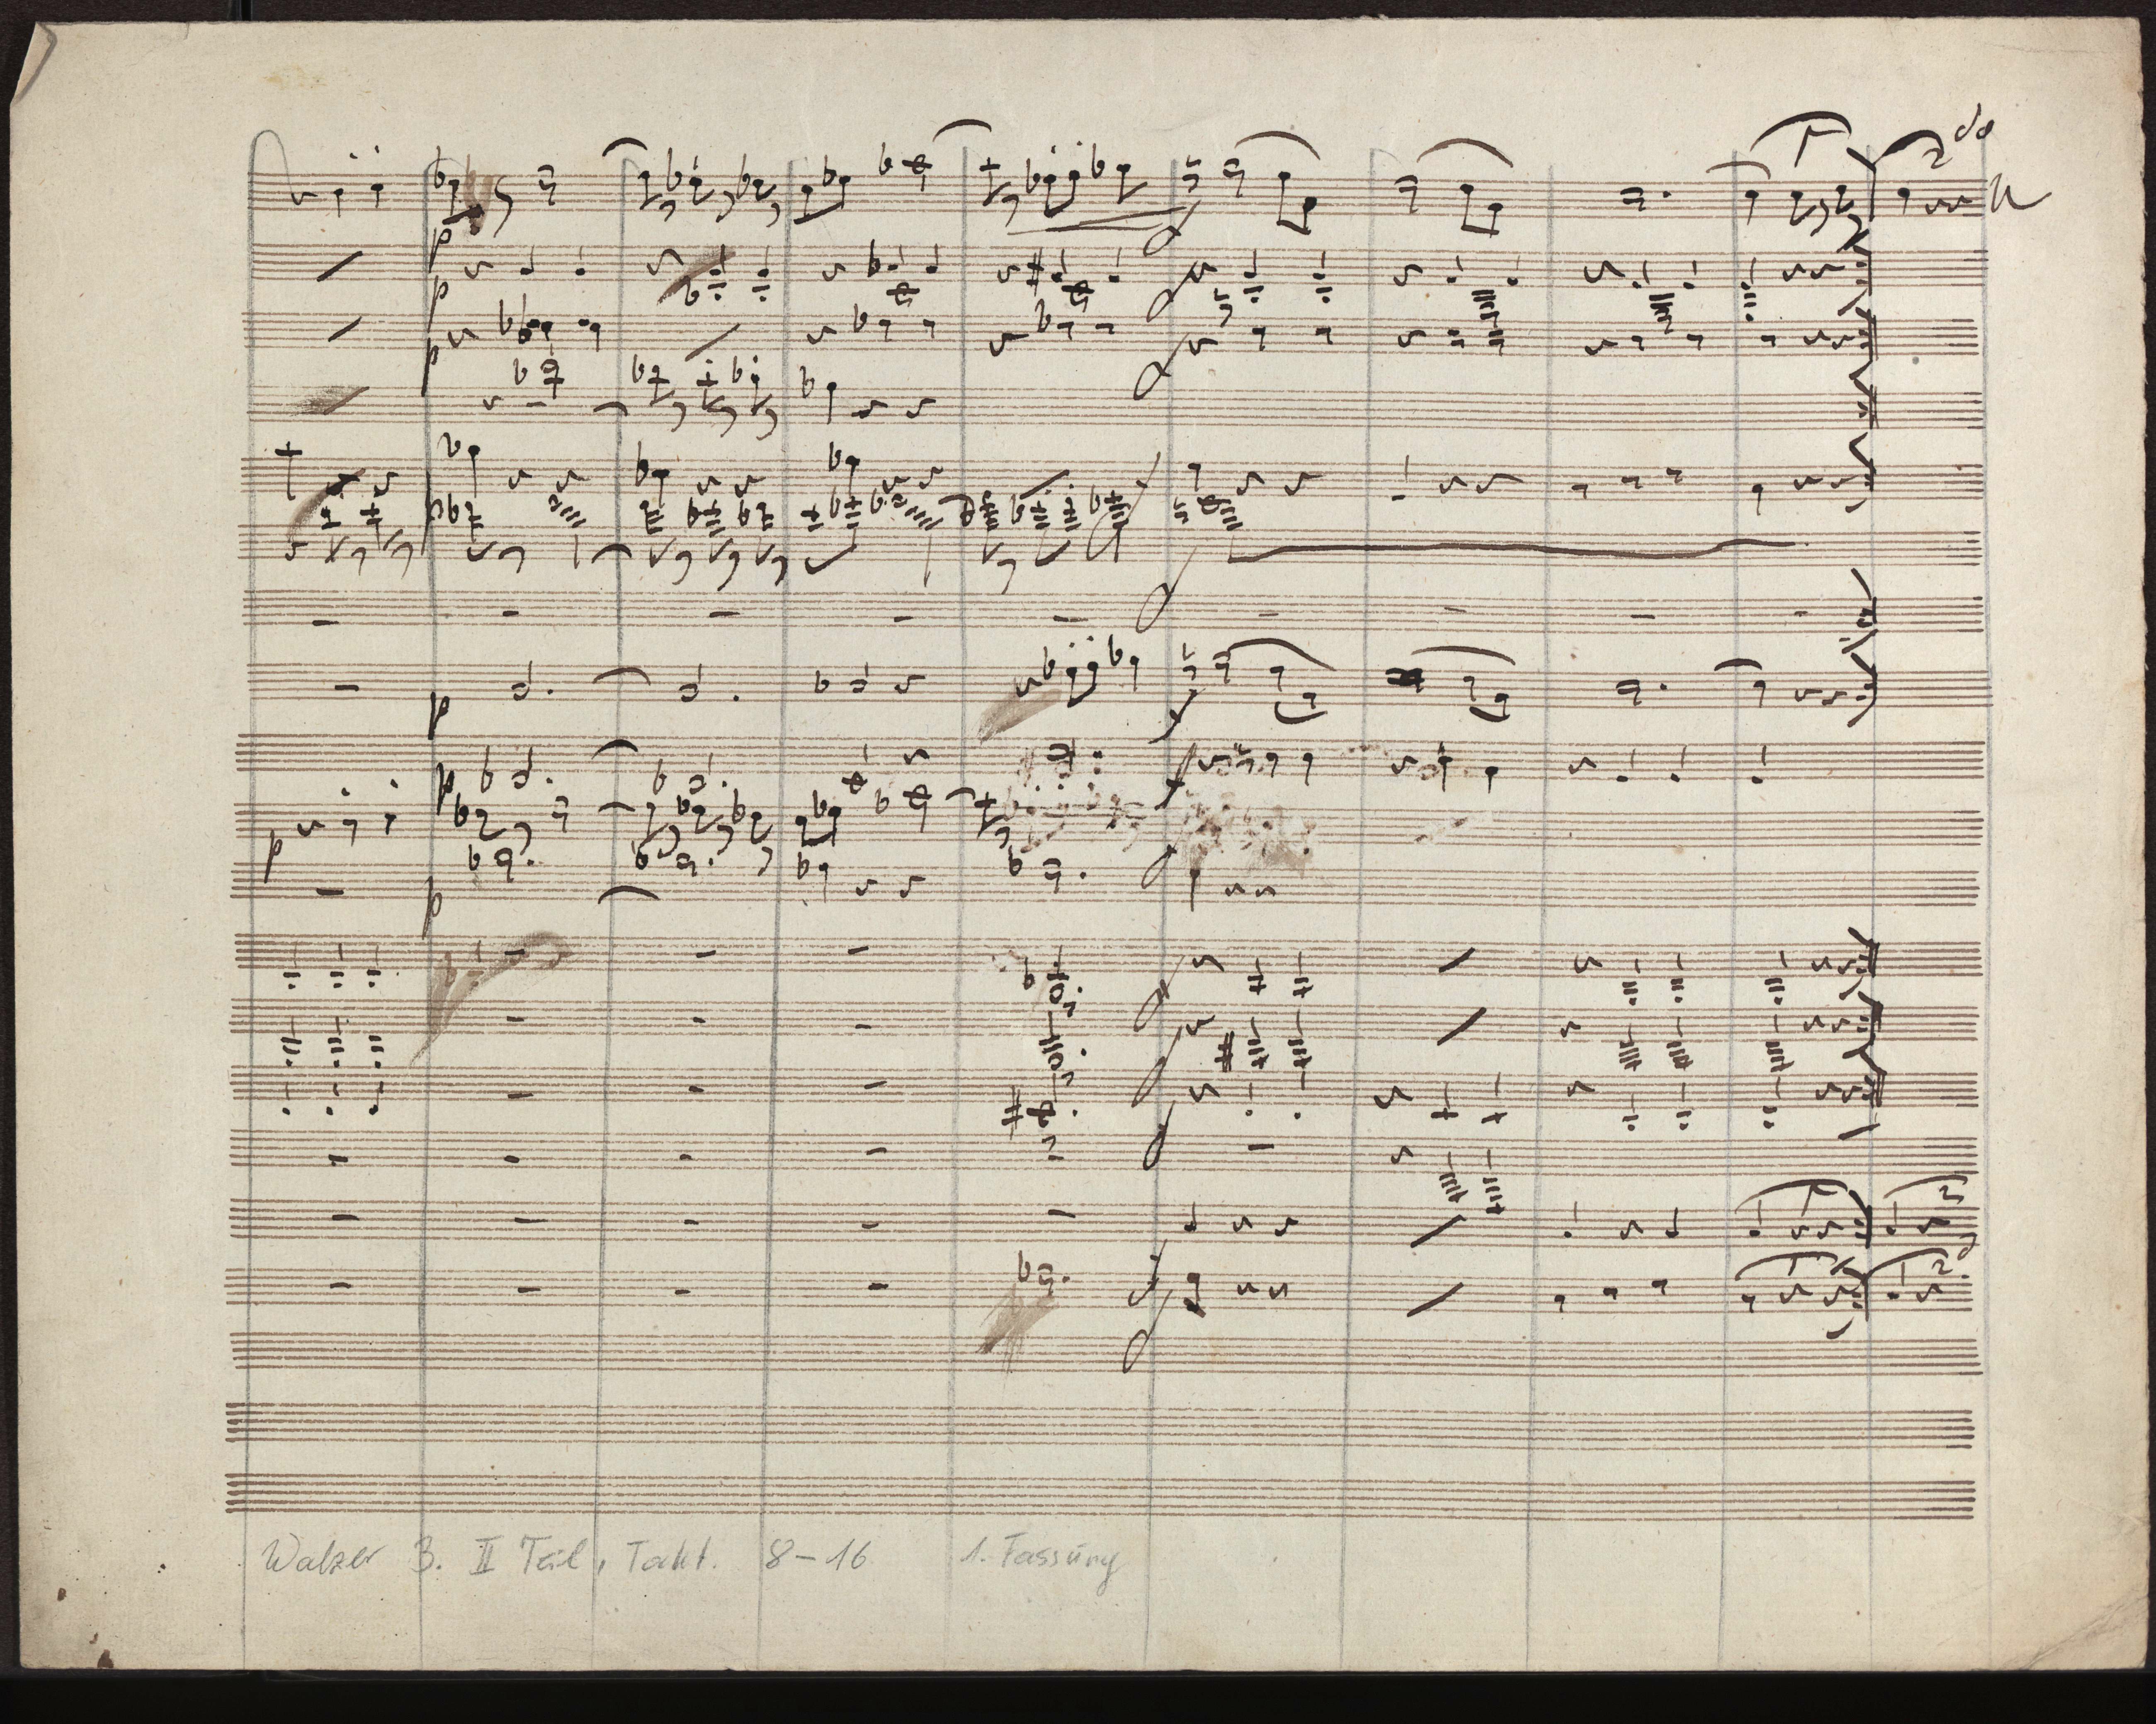 2do
p
p
p
p
p
p
p
p
Walzer 3. II Teil, Takt. 8-16 1. Fassung